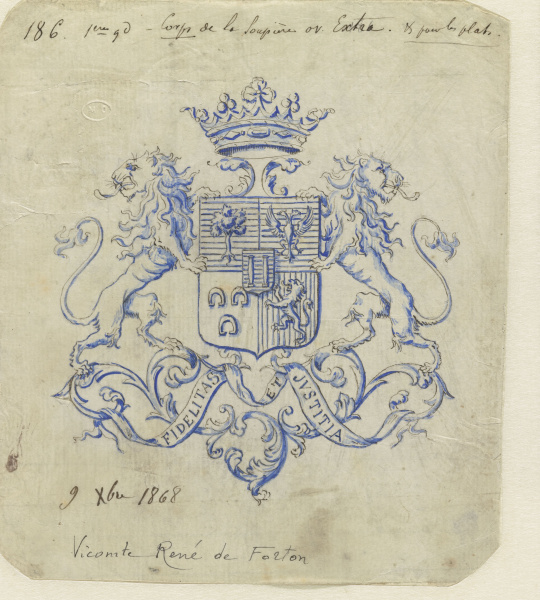 186. 1ere qd - Corps de la Soupière ov. Extra. & pour les plats.
FIDELITAS ET JVSTITIA
9 Xbre 1868
Vicomte René de Forton